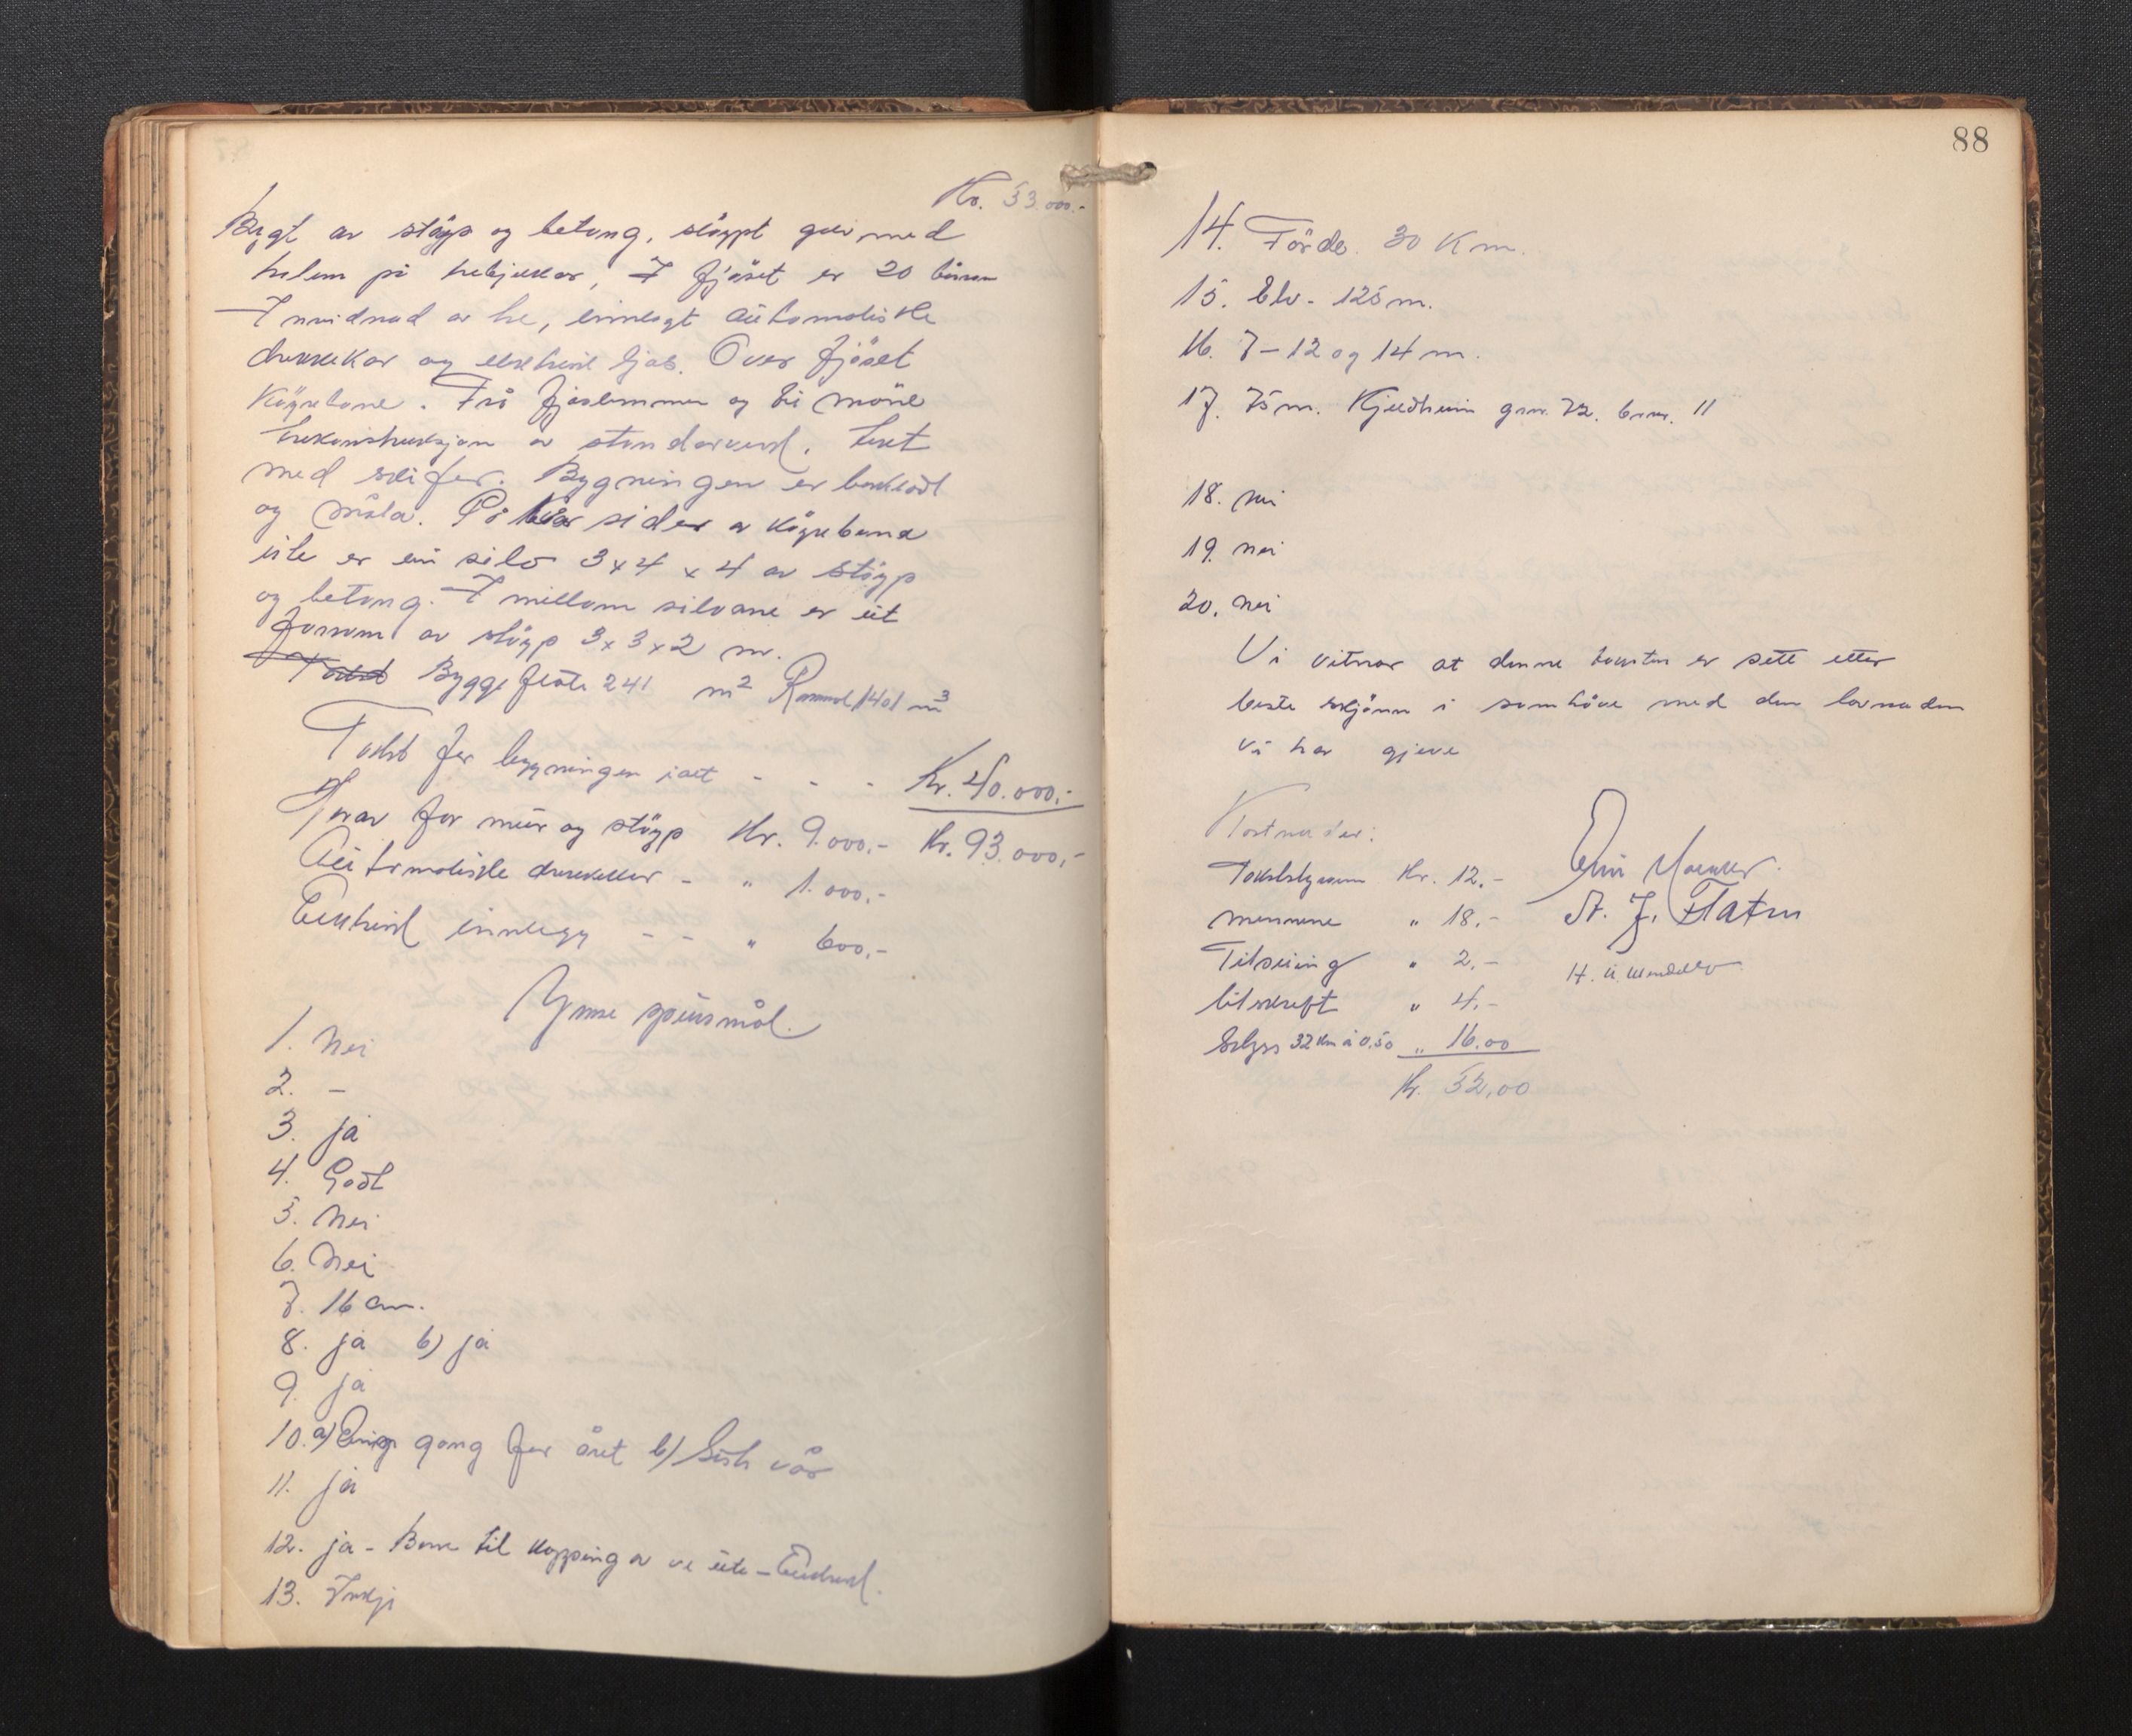 Kr. 53.000.-
Bygt av støyp og betong, støypt golv med
holem på trebjelkar, I fjøset er 20 båsar
I nnreidnad av tre, innlagt automatiske
drikkekar og elektrisk ljos. Over fjøset
Köyrebane. Frå fjøslemmen og til möne
trekonstruksjon av standarverk, tekt
med skifer. Bygningen er bordkledt
og måla. På kvar sider av köyrebana
ute er ein silo 3 x 4 x 4 av støyp
og betong. I millom siloane er eit
forrom av støyp 3 x 3 x 2 m.
Takst Byggeflate 241 m² Romml 1401 m³
Takst for bygningen i alt - - - Kr. 40.000,-
Kr. 93.000,-
Herav for mur og støyp Kr. 9.000.-
Automatiske drikkekar - " 1.000.-
Elektrisk innlegg - - " 600,-
Ymse spursmål.
1. Nei
2. -
3. ja
4. Godt
5. Nei
6. Nei
7. 16 cm.
8. ja b) ja
9. ja
10. a) Ein gong for året b) Sist vår
11. ja
12. ja - Berre til kapping av ve ute - Elektrisk.
13. Inkje
88
14. Förde 30 Km.
15. Elv - 125 m.
16. 7 - 12 og 14 m.
17. 75 m. Kjeldheim gnr. 72. bnr. 11
18. nei
19. nei
20. nei
Vi vitnar at denne taksten er sett etter
beste skjönn i samhöve med den lovnaden
vi har gjeve
Kostnader:
Takststyraren Kr. 12,-
mennene " 18.-
Tilseiing " 2,-
Utskrift " 4.-
Skyss 32 km à 0.50 " 16.00
Kr. 52,00
A. J. Flaten